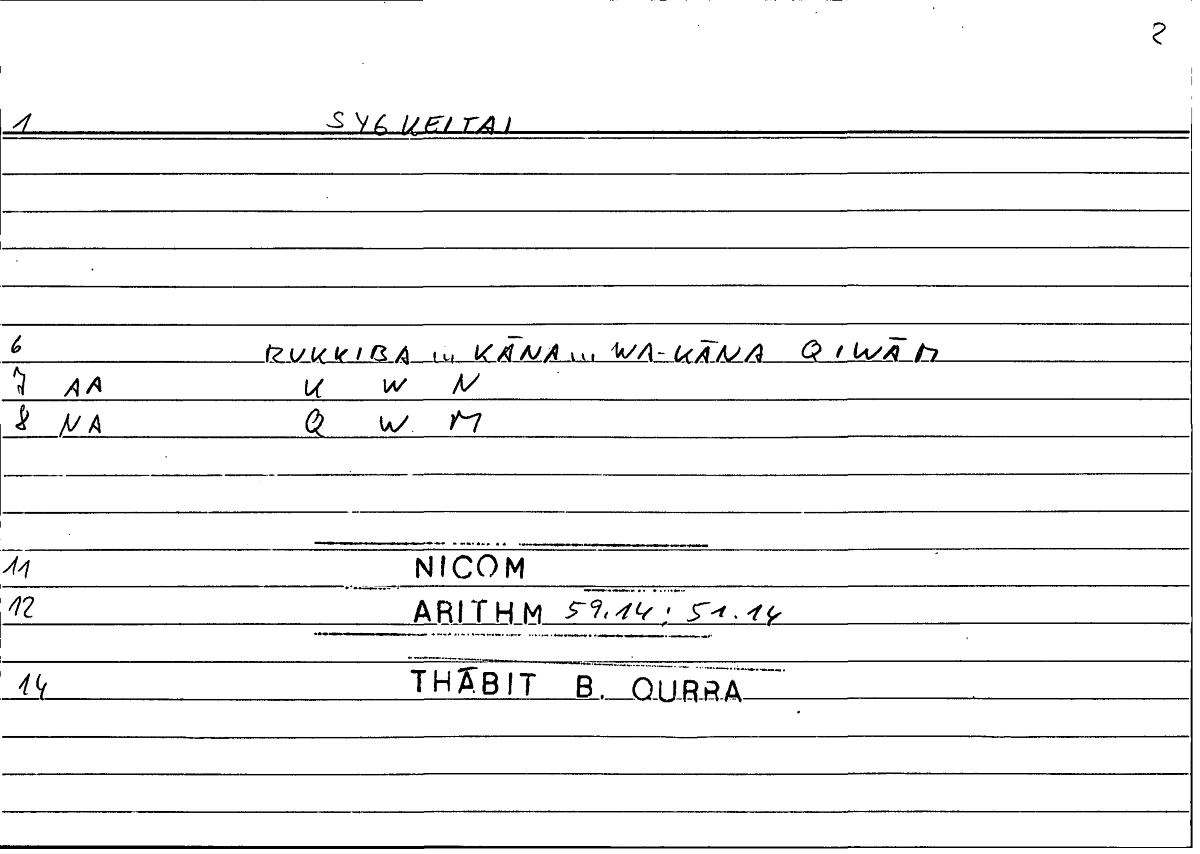 2
1 SYGKEITAI
6 RUKKIBA ... KĀNA ... WA-KĀNA QIWĀM
7 AA K W N
8 NA Q W M
11 NICOM
12 ARITHM 59.14; 51.14
14 THĀBIT B. QURRA